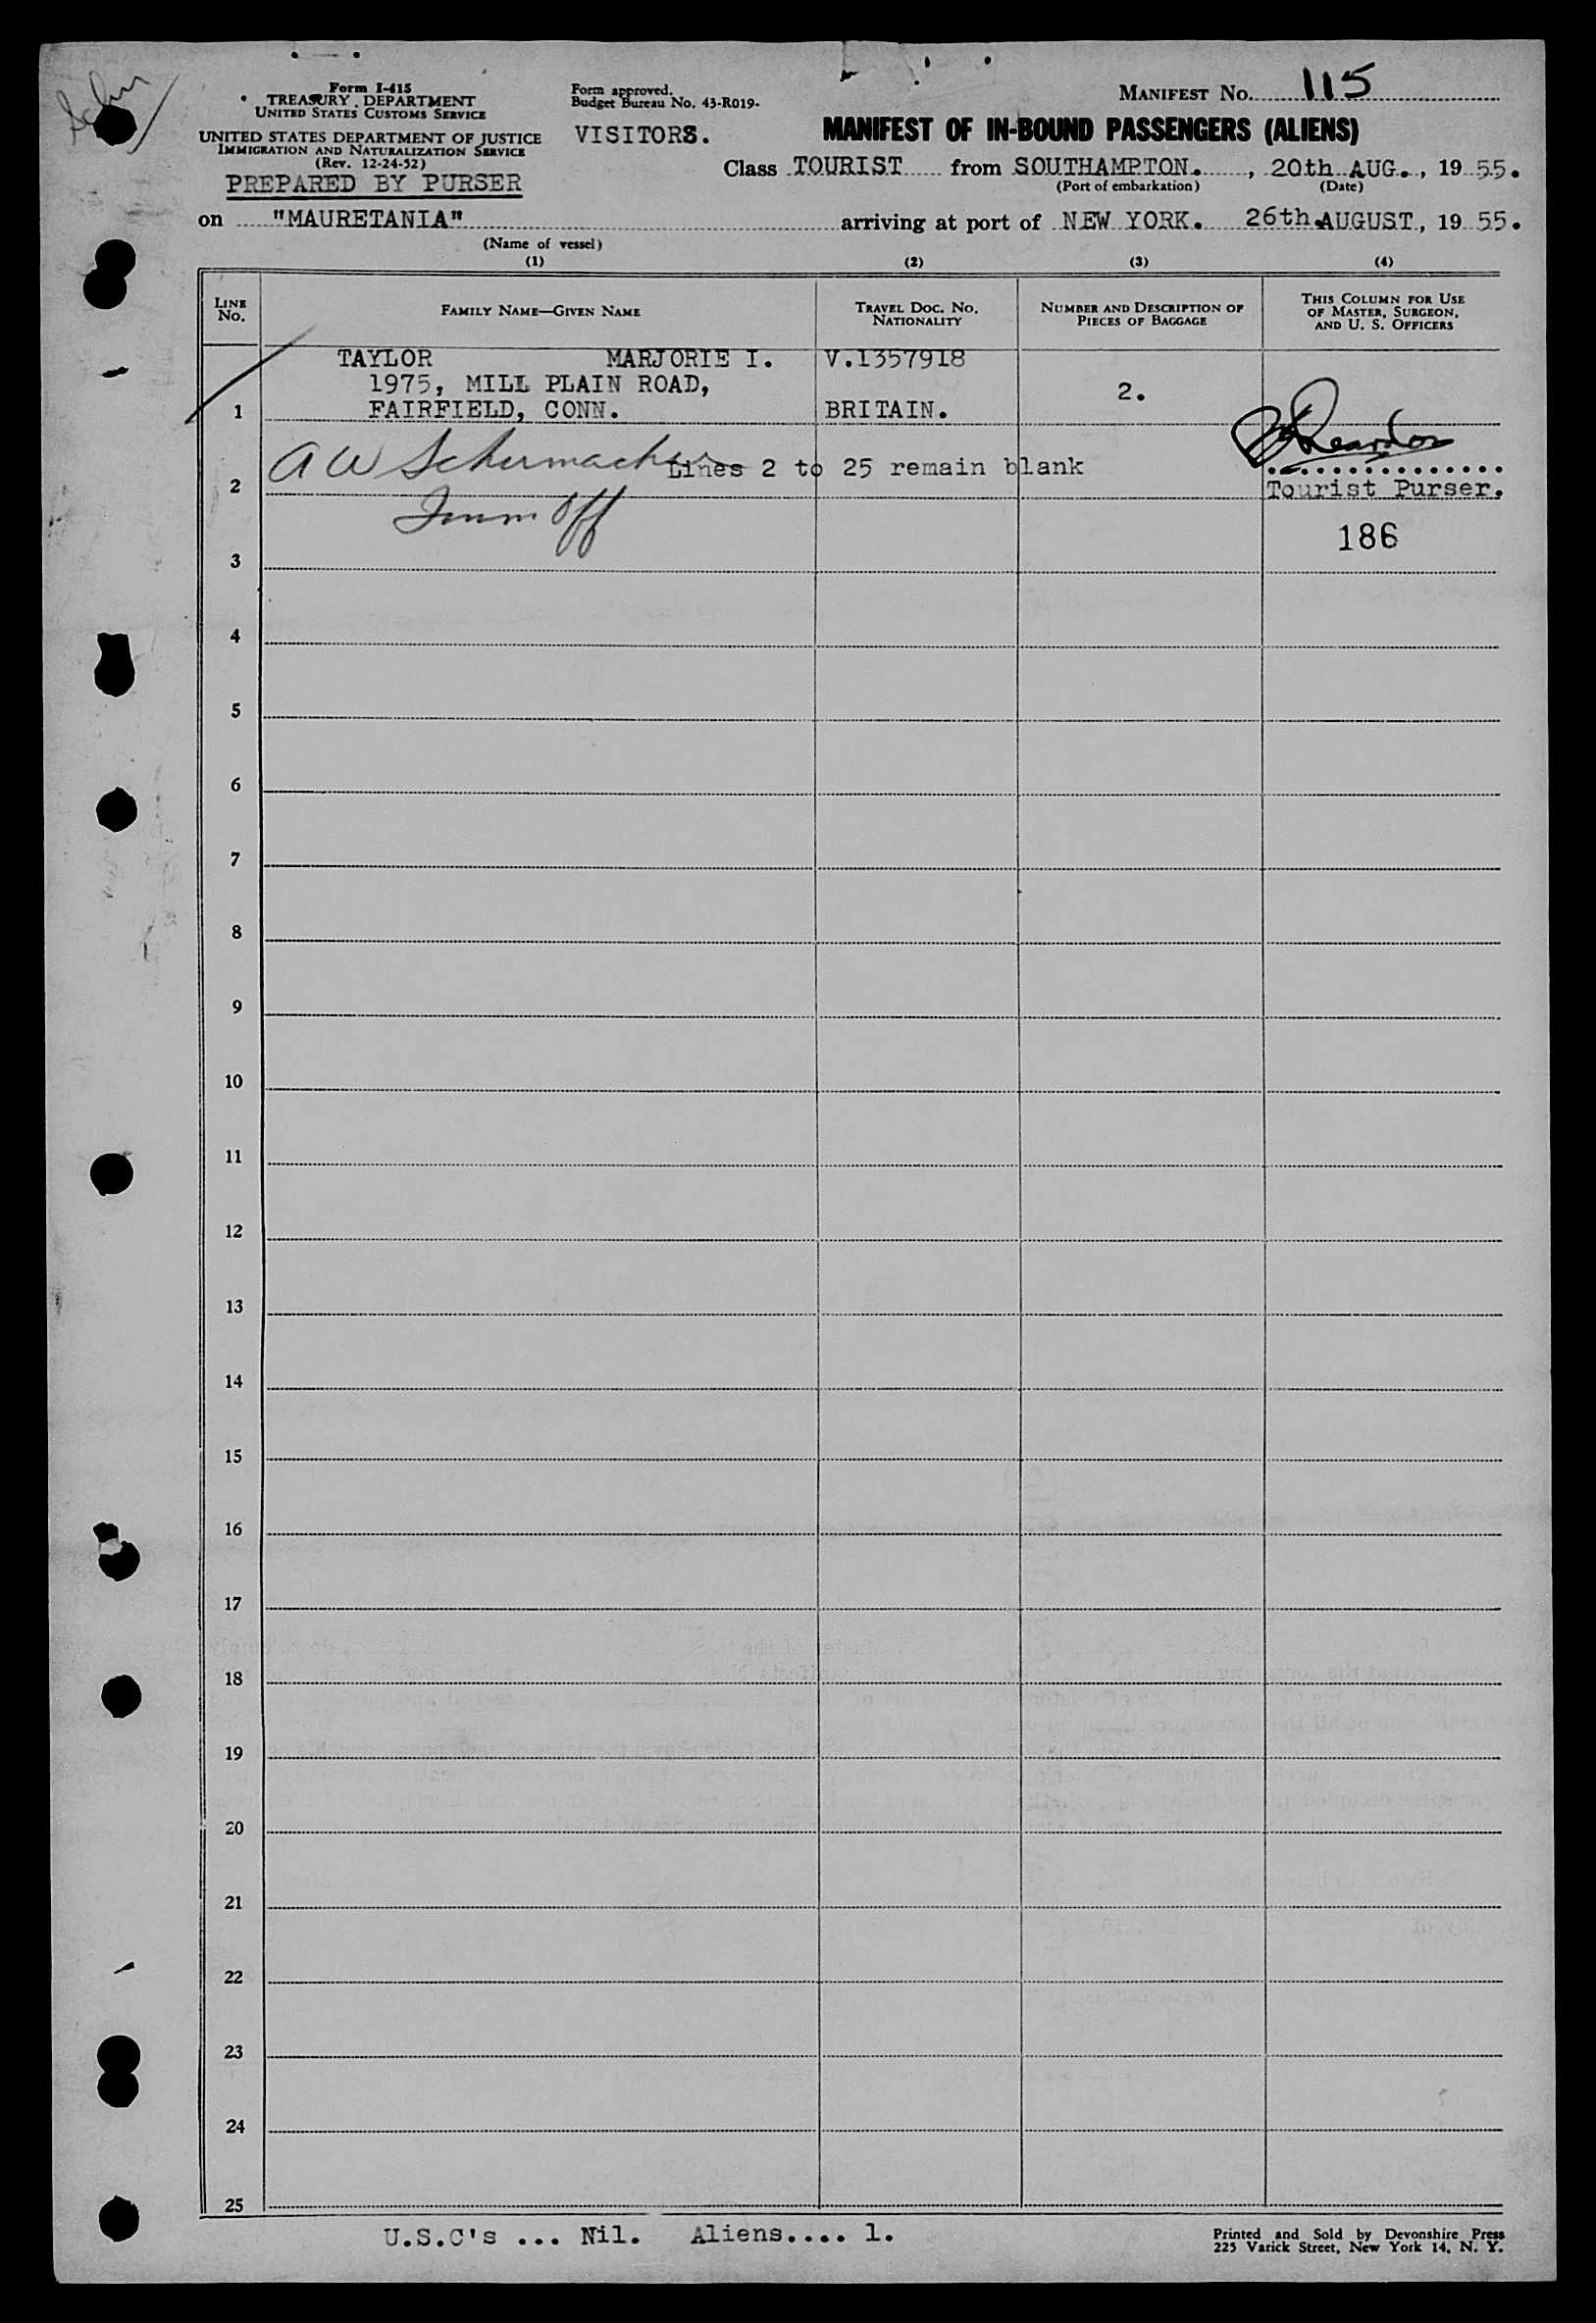 Form I-415
TREASURY DEPARTMENT
UNITED STATES CUSTOMS SERVICE
UNITED STATES DEPARTMENT OF JUSTICE
IMMIGRATION AND NATURALIZATION SERVICE
(Rev. 12-24-52)
PREPARED BY PURSER
Form approved.
Budget Bureau No. 43-R019-
VISITORS.
MANIFEST No. 115
MANIFEST OF IN-BOUND PASSENGERS (ALIENS)
Class TOURIST from SOUTHAMPTON. , 20th AUG. , 19 55.
(Port of embarkation) (Date)
on "MAURETANIA" arriving at port of NEW YORK. 26th. AUGUST, 19 55.
(Name of vessel)
(1) (2) (3) (4)
LINE No. FAMILY NAME—GIVEN NAME TRAVEL DOC. No. NATIONALITY NUMBER AND DESCRIPTION OF PIECES OF BAGGAGE THIS COLUMN FOR USE OF MASTER, SURGEON, AND U. S. OFFICERS
TAYLOR MARJORIE I. V.1357918
1975, MILL PLAIN ROAD, 2.
1 FAIRFIELD, CONN. BRITAIN.
A W Schumacher Lines 2 to 25 remain blank
2 Tourist Purser.
Imm Off
186
3
4
5
6
7
8
9
10
11
12
13
14
15
16
17
18
19
20
21
22
23
24
25
U.S.C's ... Nil. Aliens.... 1.
Printed and Sold by Devonshire Press
225 Varick Street, New York 14, N. Y.